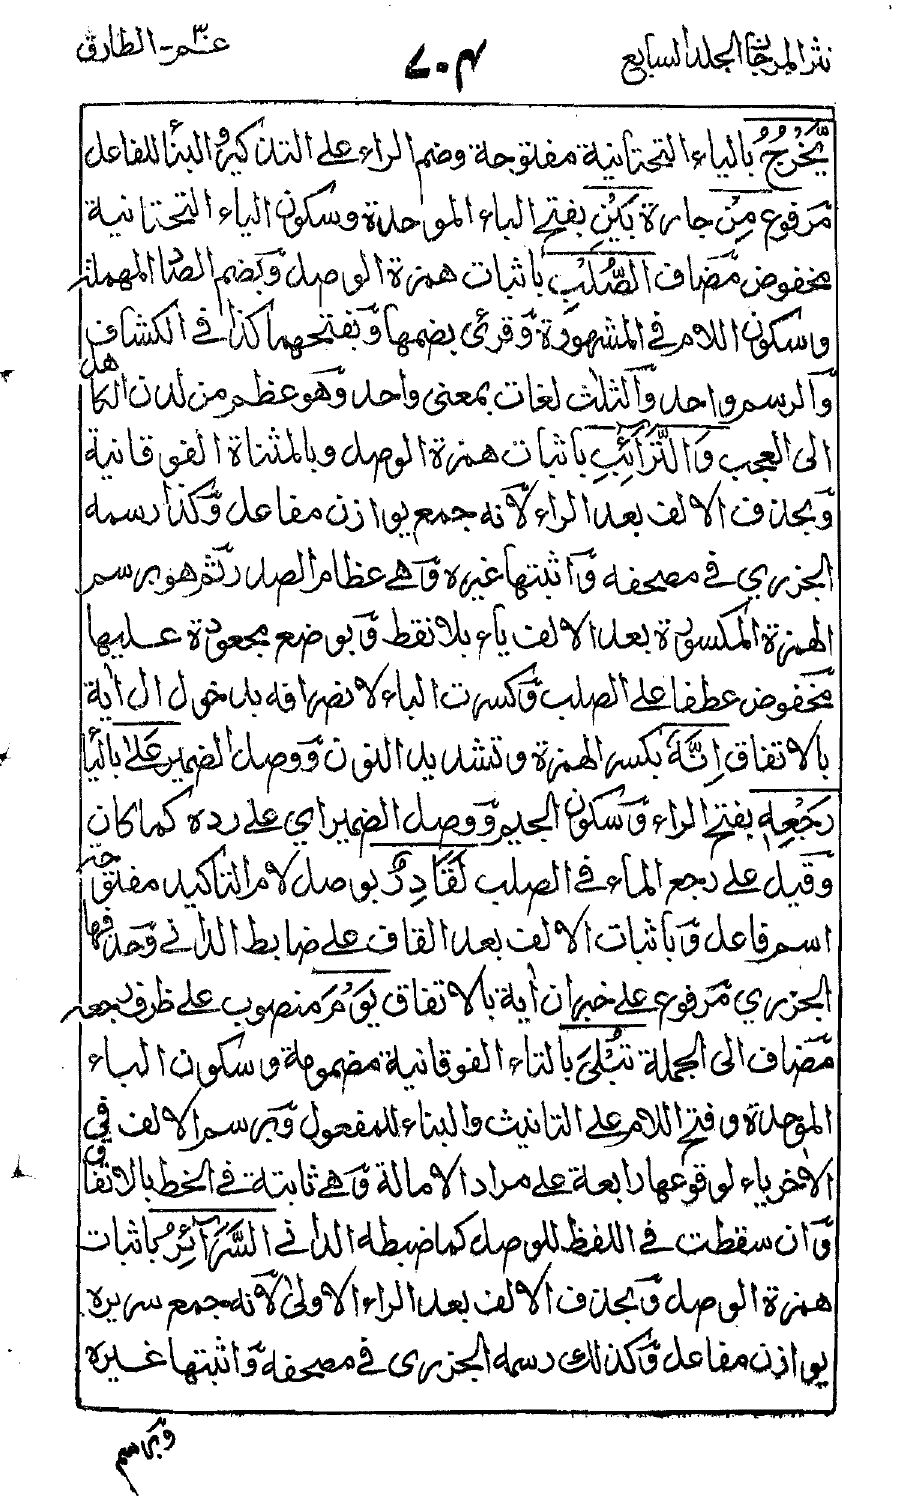 نثر المرجان المجلد السابع
٧٠٤
عٓمّ - الطارق
يَخْرُجُ بالياء التحتانية مفتوحة وضم الراء على التذكير والبناء للفاعل
مرفوع مِنْ جارة بَيْنِ بفتح الباء الموحدة وسكون الياء التحتانية
مخفوض مضاف الصُّلْبِ باثبات همزة الوصل وبضم الصاد المهملة
وسكون اللام في المشهورة وقرئ بضمها وبفتحهما كذا في الكشاف
والرسم واحد والثلث لغات بمعنى واحد وهو عظم من لدن الكاهل
الى العجب وَالتَّرَآئِبِ باثبات همزة الوصل وبالمثناة الفوقانية
وبحذف الالف بعد الراء لانه جمع يوازن مفاعل وكذا رسمه
الجزري في مصحفه واثبتها غيره وهي عظام الصدر ثم هو برسم
الهمزة المكسورة بعد الالف ياء بلا نقط وبوضع مجعودة عليها
مخفوض عطفا على الصلب وكسرت الباء لانصرافه بدخول ال اية
بالاتفاق اِنَّهٗ بكسر الهمزة وتشديد النون ووصل الضمير عَلٰى بالياء
رَجْعِهٖ بفتح الراء وسكون الجيم ووصل الضمير اي على رده كما كان
وقيل على رجع الماء في الصلب لَقَادِرٌ بوصل لام التاكيد مفتوحة
اسم فاعل وباثبات الالف بعد القاف على ضابط الداني وحذفها
الجزري مرفوع على خبر ان اية بالاتفاق يَوْمَ منصوب على ظرف رجعه
مضاف الى الجملة تُبْلَى بالتاء الفوقانية مضمومة وسكون الباء
الموحدة وفتح اللام على التانيث والبناء للمفعول وبرسم الالف في
الاخر ياء لوقوعها رابعة على مراد الامالة وهي ثابتة في الخط بالاتفاق
وان سقطت في اللفظ للوصل كما ضبطه الداني السَّرَآئِرُ باثبات
همزة الوصل وبحذف الالف بعد الراء الاولى لانه جمع سريرة
يوازن مفاعل وكذلك رسمه الجزري في مصحفه واثبتها غيره
وبرسم